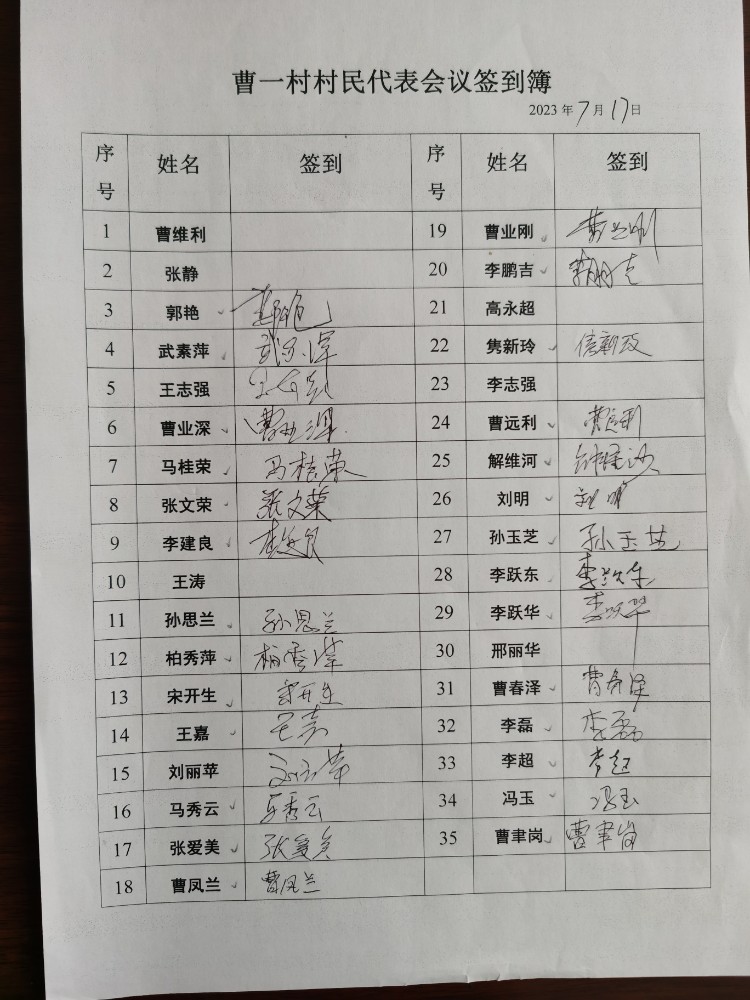 曹一村村民代表会议签到簿
2023 年 7 月 17 日
序号 姓名 签到 序号 姓名 签到
1 曹维利 19 曹业刚 曹业刚
2 张静 20 李鹏吉 李鹏吉
3 郭艳 郭艳 21 高永超
4 武素萍 武素萍 22 隽新玲
5 王志强 王志强 23 李志强
6 曹业深 曹业深 24 曹远利 曹远利
7 马桂荣 马桂荣 25 解维河 解维河
8 张文荣 张文荣 26 刘明 刘明
9 李建良 李建良 27 孙玉芝 孙玉芝
10 王涛 28 李跃东 李跃东
11 孙思兰 孙思兰 29 李跃华 李跃华
12 柏秀萍 柏秀萍 30 邢丽华
13 宋开生 宋开生 31 曹春泽 曹春泽
14 王嘉 王嘉 32 李磊 李磊
15 刘丽苹 33 李超 李超
16 马秀云 马秀云 34 冯玉 冯玉
17 张爱美 张爱美 35 曹聿岗 曹聿岗
18 曹凤兰 曹凤兰